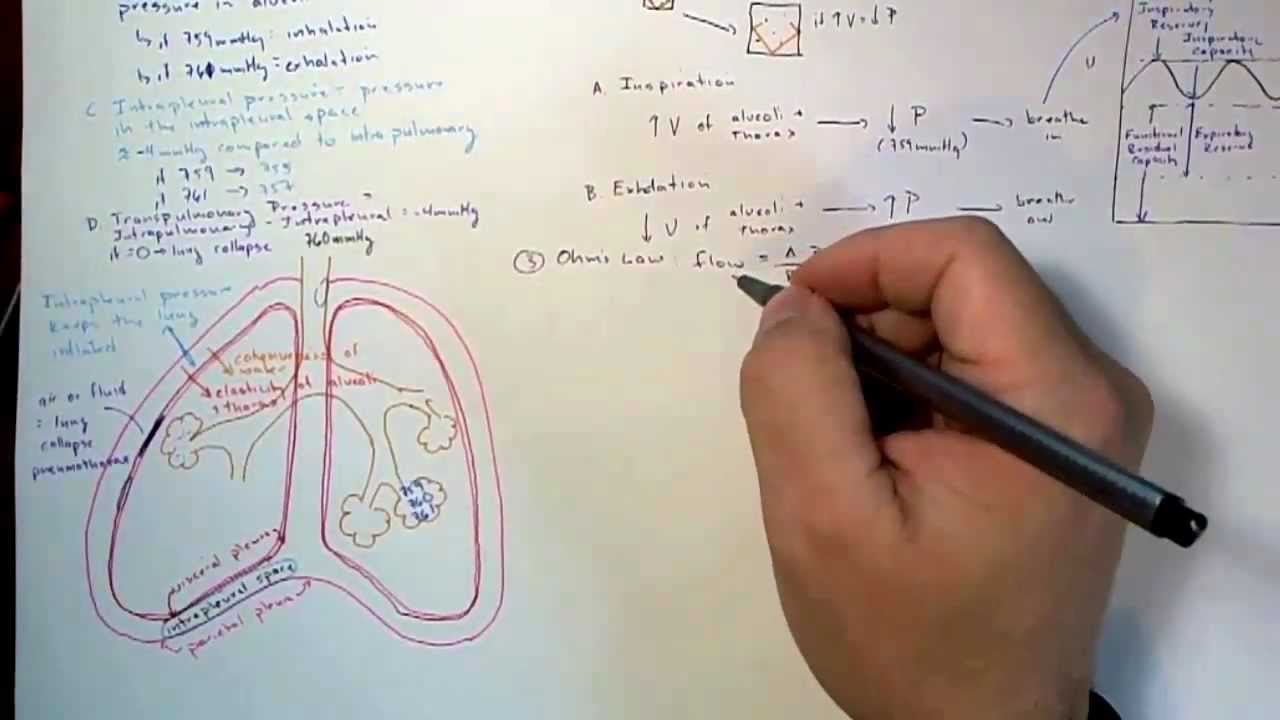 pressure in alveoli
↳ if 759mmHg = inhalation
↳ if 761mmHg = exhalation
C Intrapleural pressure = pressure
in the intrapleural space
≈ -4mmHg compared to intrapulmonary
if 759 → 755
if 761 → 757
D. Transpulmonary Pressure =
Intrapulmonary - Intrapleural = -4mmHg
if = 0 → lung collapse
760mmHg
Intrapleural pressure
keeps the lung
inflated
cohesiveness of
water
elasticity of alveoli
+ thorax
air or fluid
= lung
collapse
pneumothorax
759
760
761
visceral pleura
intrapleural space
parietal pleura
if ↑V = ↓P
A. Inspiration
↑ V of alveoli +
thorax → ↓ P
(759mmHg) → breathe
in
B. Exhalation
↓ V of alveoli +
thorax → ↑ P → breathe
out
③ Ohm's Law: flow = Δ
Inspiratory
Reserve
Inspiratory
Capacity
V
Functional
Residual
Capacity
Expiratory
Reserve